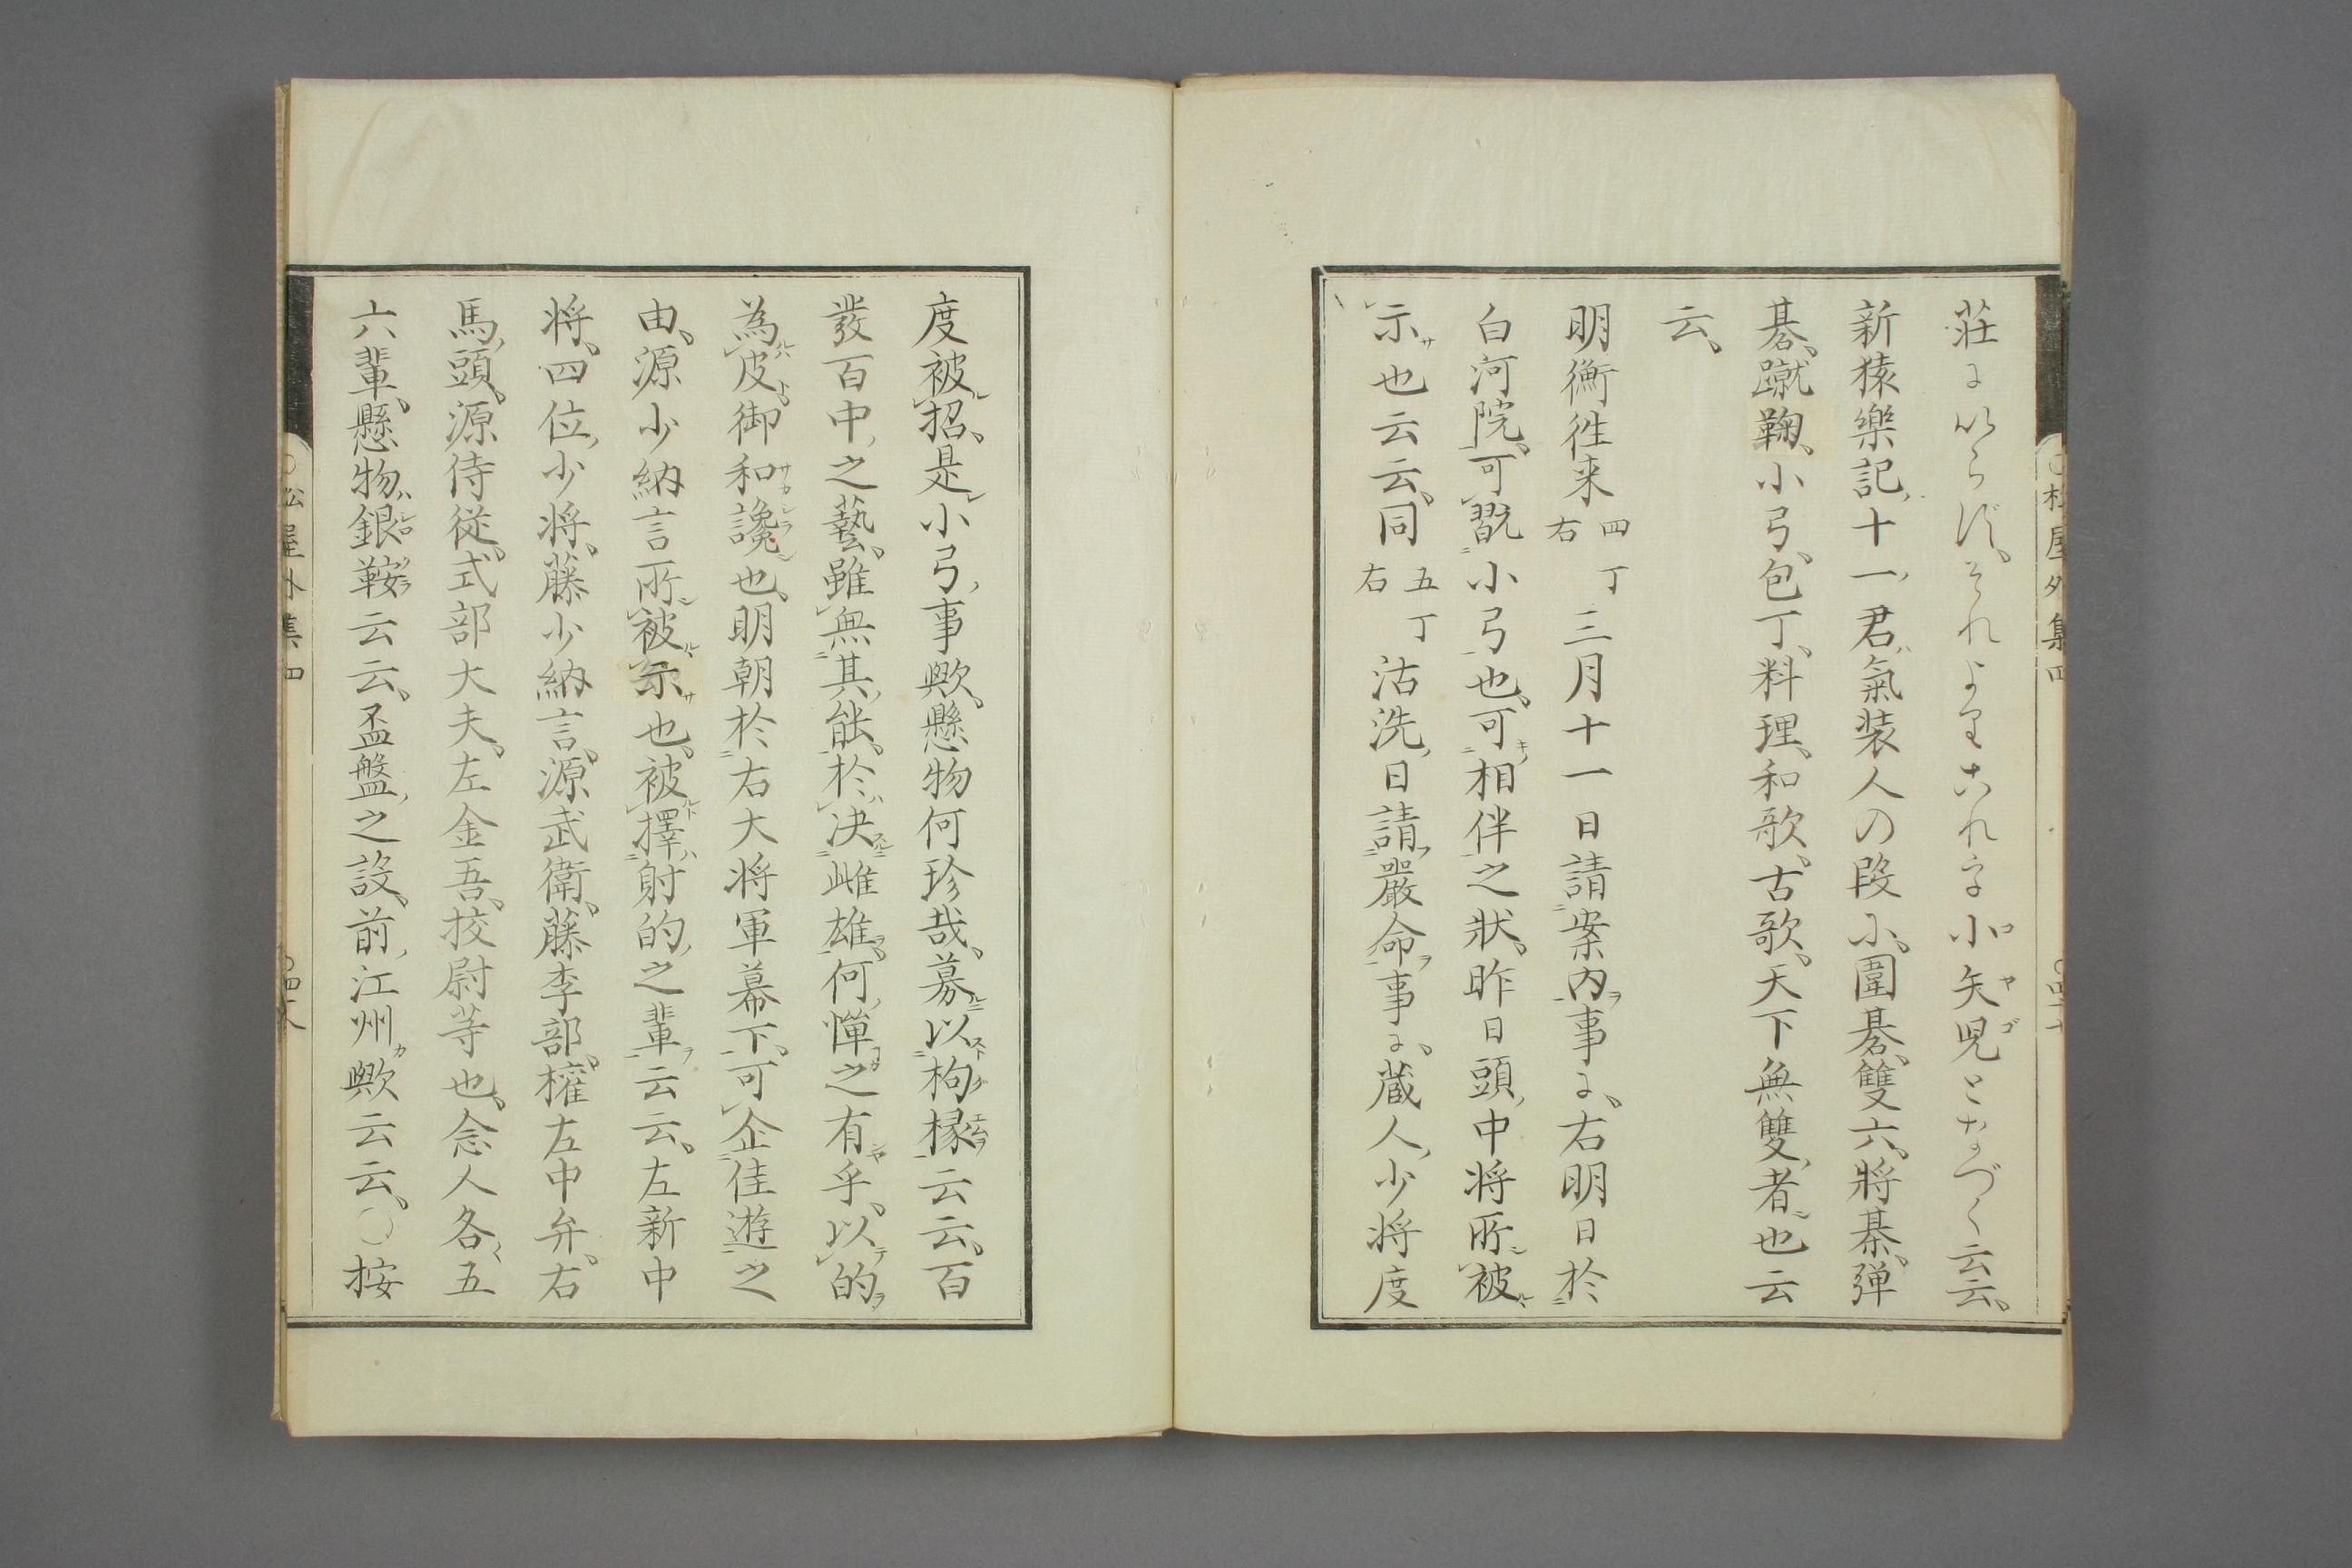 荘にいらず、それよりこれを小矢児となづく云云、
新猿樂記、十一君氣装人の段に、圍碁、雙六、將棊、弾
碁、蹴鞠、小弓、包丁、料理、和歌、古歌、天下無雙者也云
云、
明衡徃来四丁右三月十一日請案内事に、右明日於
白河院、可翫小弓也、可相伴之狀、昨日頭中将所被
示也云云、同五丁右沽洗日請嚴命事に、蔵人少将度
度被招、是小弓事歟、懸物何珍哉、募以枸櫞云云、百
發百中之藝、雖無其能、於决雌雄、何憚之有乎、以的
為皮、御和讒也、明朝於右大将軍幕下、可企佳遊之
由、源少納言所被示也、被擇射的之輩云云、左新中
将、四位少将、藤少納言、源武衛、藤李部、權左中弁、右
馬頭、源侍従、式部大夫、左金吾、挍尉等也、念人各五
六輩、懸物銀鞍云云、盃盤之設、前江州歟云云、〇按
松屋外集四